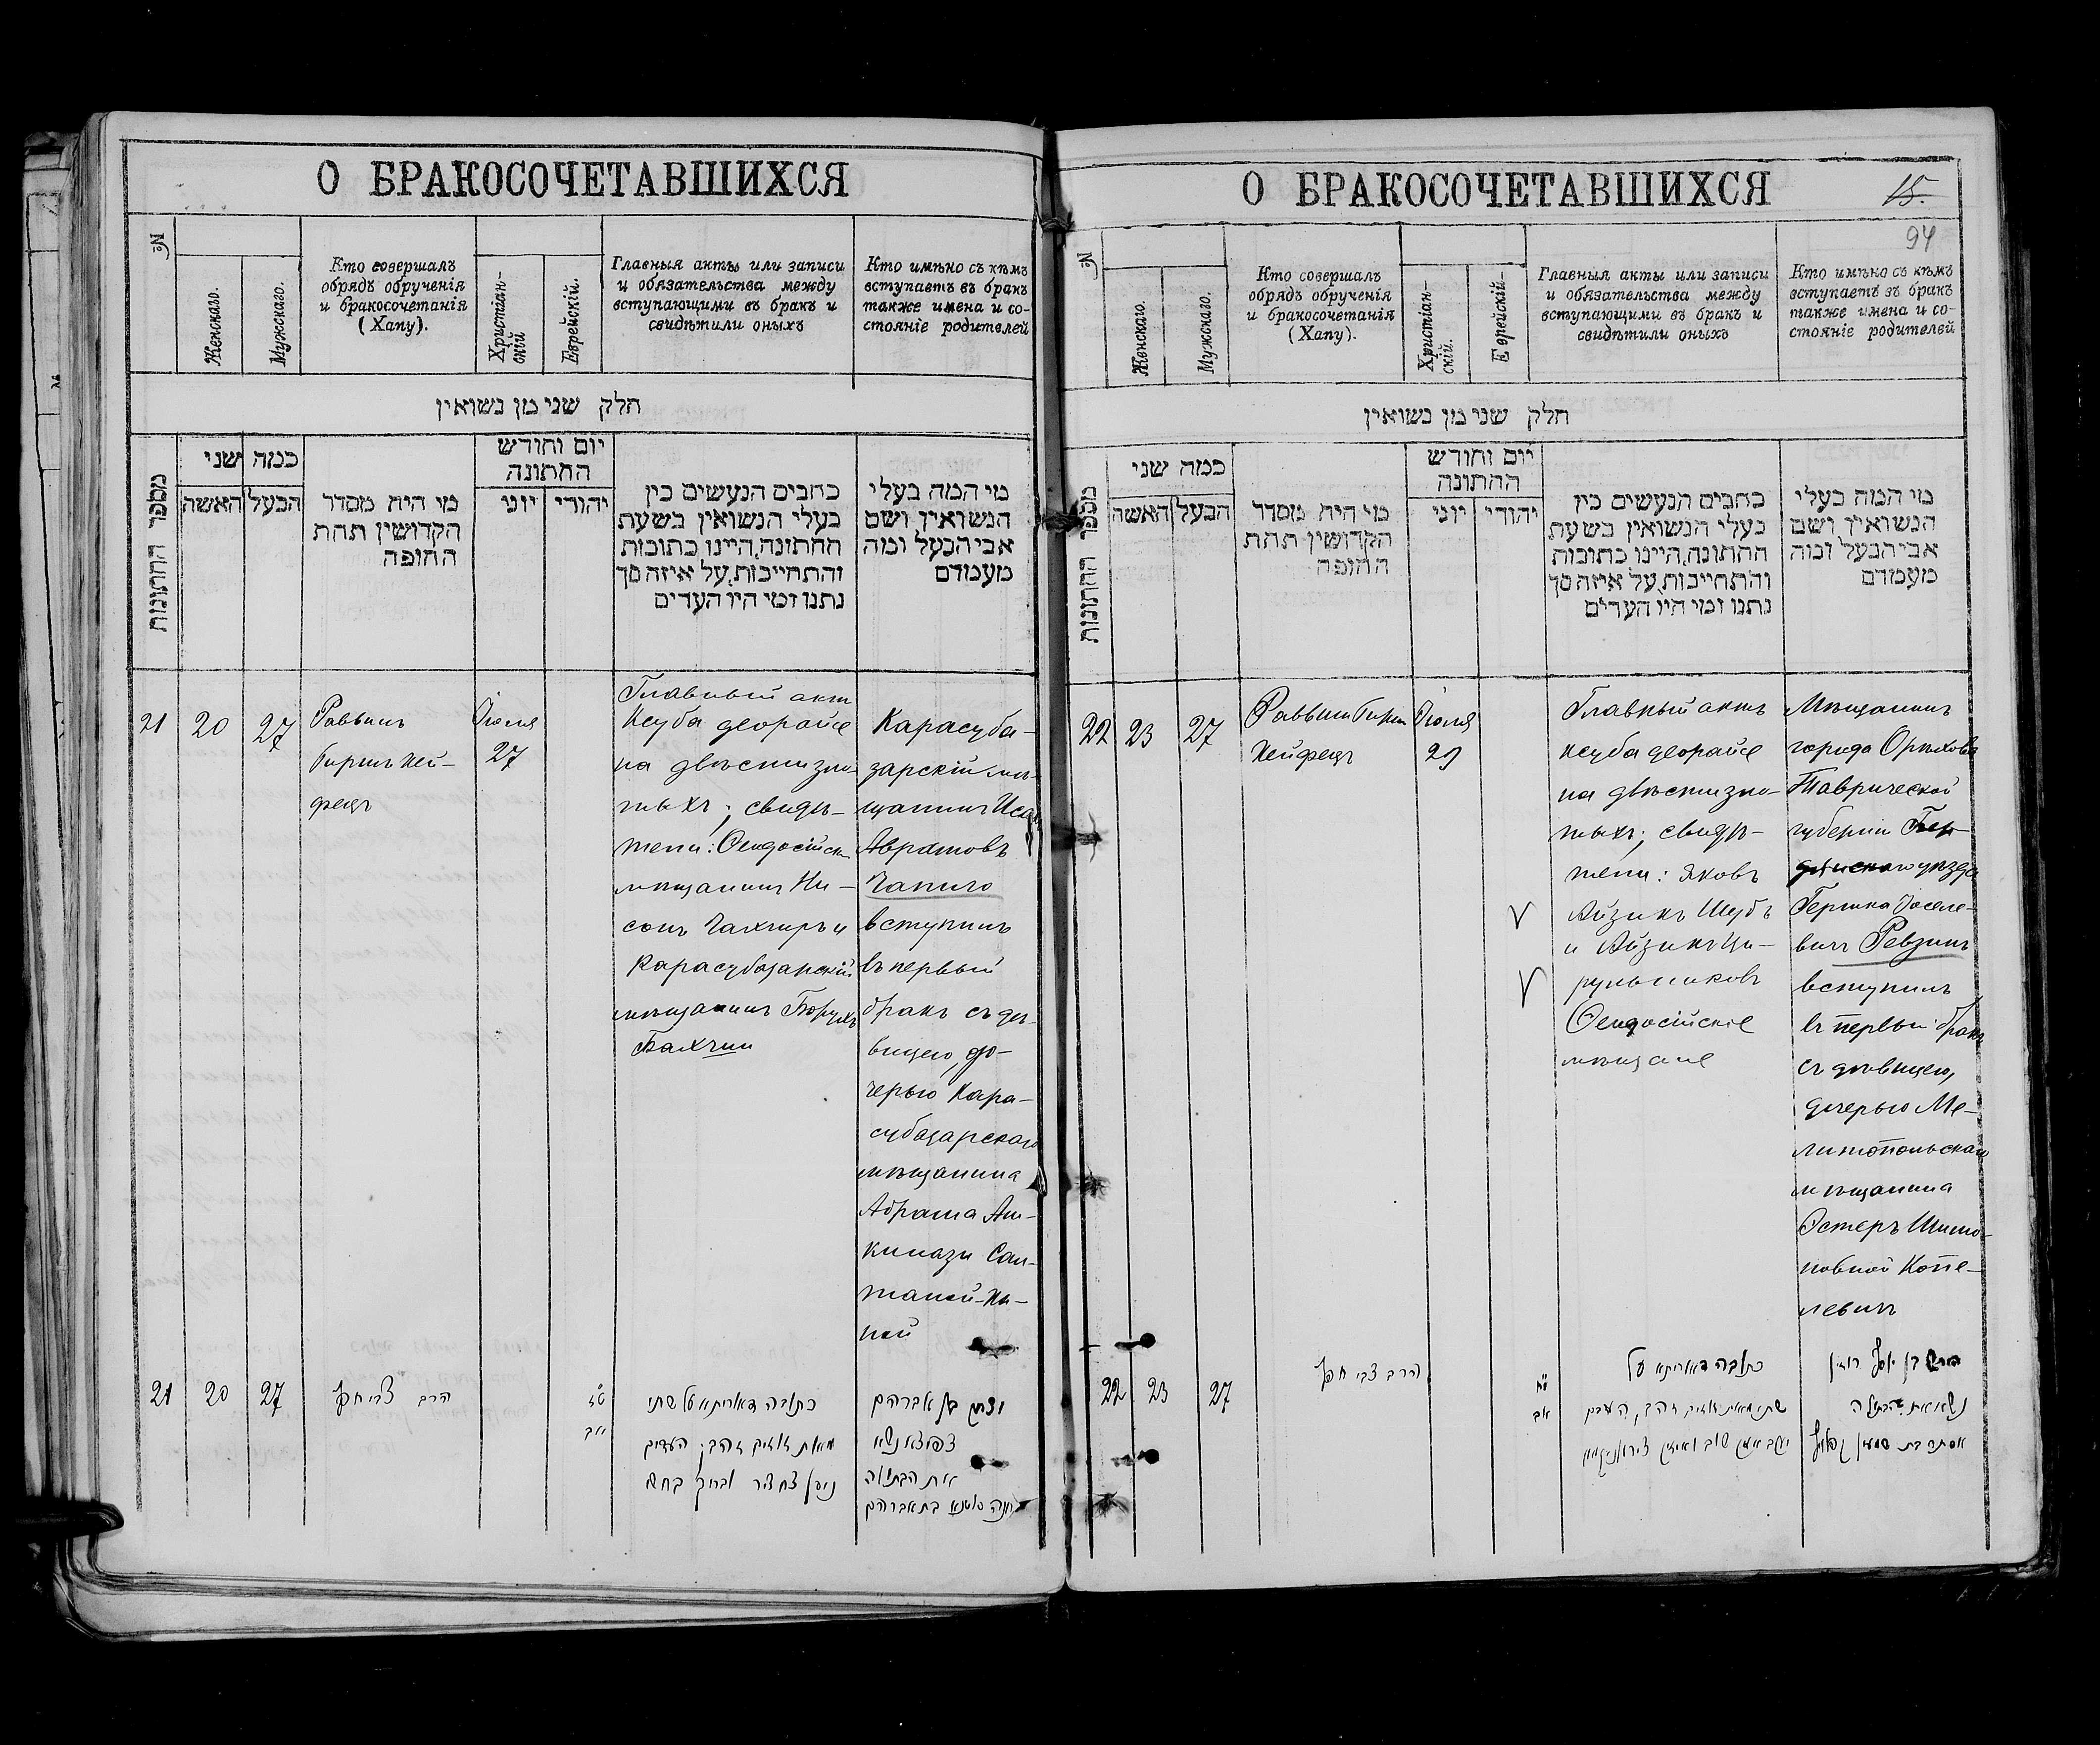 О БРАКОСОЧЕТАВШИХСЯ
№
Женскаго.
Мужскаго.
Кто совершалъ
обрядъ обрученія
и бракосочетанія
(Хапу).
Христіан-
скій
Еврейскій.
Главныя акты или записи
и обязательства между
вступающими въ бракъ и
свидѣтили оныхъ
Кто имѣно съ кѣмъ
вступаетъ въ бракъ
также имена и со-
стояніе родителей
חלק שני מן נשואין
מספר החתונות
כמה שני
האשה
הבעל
מי היה מסדר
הקדושין תחת
החופה
יום וחודש
החתונה
יוני
יהודי
כתבים הנעשים בין
בעלי הנשואין בשעת
החתונה, היינו כתובות
והתחייבות, על איזה סך
נתנו ומי היו העדים
מי המה בעלי
הנשואין ושם
אבי הבעל ומה
מעמדם
21
20
27
Раввинъ
Гиршъ Хей-
фецъ
Іюля
27
Главный актъ
Ксуба деорайсе
на двѣсти зло-
тыхъ; свидѣ-
тели: Ѳеодосійскій
мѣщанинъ Ни-
сонъ Чахчиръ и
Карасубазарскій
мѣщанинъ Борухъ
Бахчи
Карасуба-
зарскій мѣ-
щанинъ
Аврамовъ
Чапичо
вступилъ
въ первый
бракъ съ дѣ-
вицею, до-
черью Кара-
субазарскаго
мѣщанина
Абрама Аш-
кинази Сул-
таной-Ха-
ной
21
20
27
הרב צבי חפץ
ט״ז
אב
כתובה דאוריתא על שתי
מאות זוזים זהב; העדים
ניסן צחציר וברוך בחצי
יצחק בן אברהם
צפיצו נשא
את הבתולה
חנה סולטנא בת אברהם
О БРАКОСОЧЕТАВШИХСЯ
15.
94
№
Женскаго.
Мужскаго.
Кто совершалъ
обрядъ обрученія
и бракосочетанія
(Хапу).
Христіан-
скій.
Еврейскій.
Главныя акты или записи
и обязательства между
вступающими въ бракъ и
свидѣтили оныхъ
Кто имѣно съ кѣмъ
вступаетъ въ бракъ
также имена и со-
стояніе родителей
חלק שני מן נשואין
מספר החתונות
כמה שני
האשה
הבעל
מי היה מסדר
הקדושין תחת
החופה
יום וחודש
החתונה
יוני
יהודי
כתבים הנעשים בין
בעלי הנשואין בשעת
החתונה, היינו כתובות
והתחייבות, על איזה סך
נתנו ומי היו העדים
מי המה בעלי
הנשואין ושם
אבי הבעל ומה
מעמדם
22
23
27
Раввинъ Гиршъ
Хейфецъ
Іюля
29
Главный актъ
ксуба деорайсе
на двѣсти зло-
тыхъ; свидѣ-
тели: Яковъ
Айзикъ Шубъ
и Айзикъ Ци-
рульниковъ
Ѳеодосійскіе
мѣщане
Мѣщанинъ
города Орѣхова
Таврической
губерніи Бер-
дянскаго уѣзда
Гершка Іоселе-
вичъ Ревзинъ
вступилъ
въ первый бракъ
съ дѣвицею,
дочерью Ме-
литопольскаго
мѣщанина
Эстеръ Шимо-
новной Копе-
левичъ
22
23
27
הרב צבי חפץ
י״ח
אב
כתובה דאוריתא על
שתי מאות זוזים זהב; העדים
יעקב אייזיק שוב ואייזיק צירולניקאוו
בן יוסף רווזין
נשא את הבתולה
אסתר בת שמעון קפלוביץ